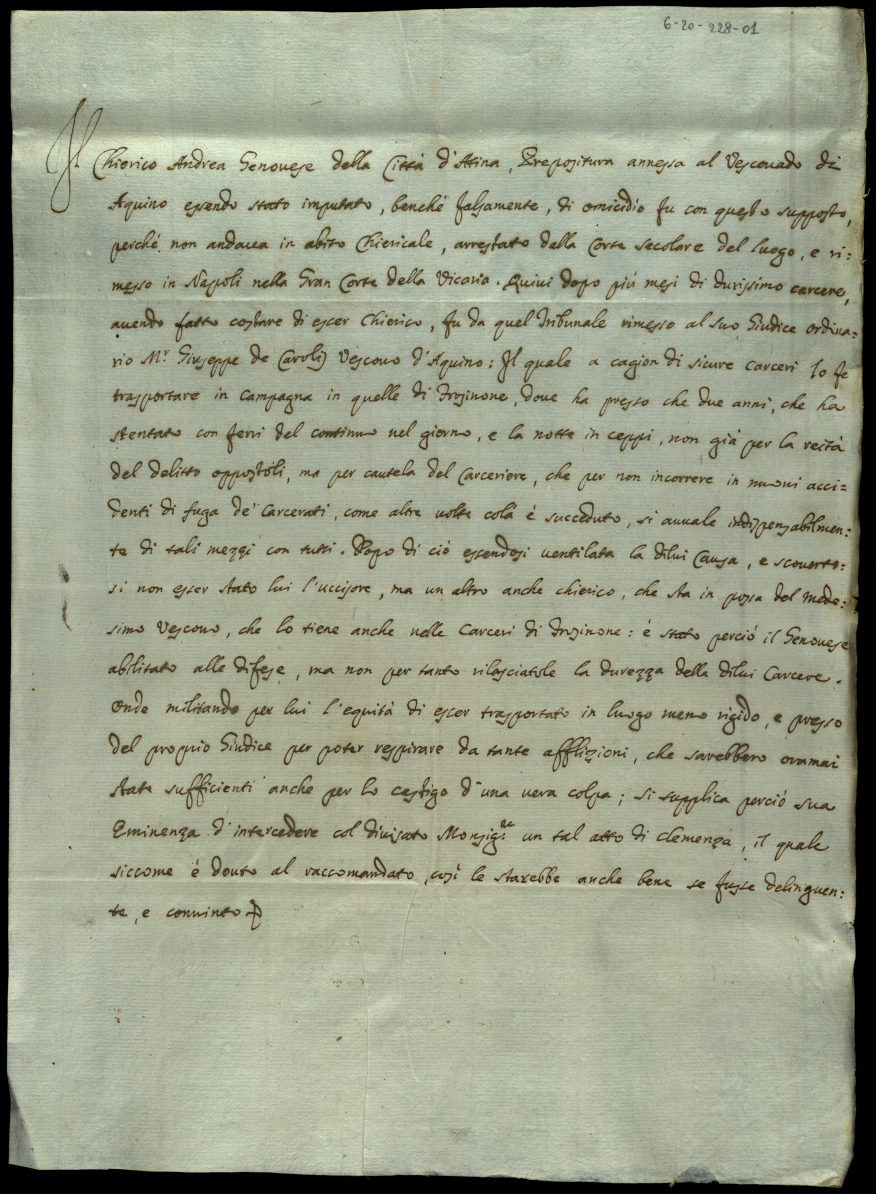 6-20-228-01
Il Chierico Andrea Genovese della Città d'Atina, Prepositura annessa al Vescovado di
Aquino essendo stato imputato, benché falsamente, di omicidio fu con questo supposto,
perché non andava in abito Chiericale, arrestato dalla Corte secolare del luogo, e ri=
messo in Napoli nella Gran Corte della Vicaria. Quivi dopo più mesi di durissimo carcere,
avendo fatto costare di esser Chierico, fu da quel Tribunale rimesso al suo Giudice ordina=
rio Mr. Giuseppe de Carolis Vescovo d'Aquino: Il quale a cagion di sicure carceri lo fe
trasportare in campagna in quelle di Frosinone, dove ha presso che due anni, che ha
stentato con ferri del continuo nel giorno, e la notte in ceppi, non già per la reità
del delitto oppostoli, ma per cautela del Carceriere, che per non incorrere in nuovi acci=
denti di fuga de' Carcerati, come altre volte colà è succeduto, si avvale indispensabilmen=
te di tali mezzi con tutti. Dopo di ciò essendosi ventilata la dilui Causa, e scoverto=
si non esser stato lui l'uccisore, ma un altro anche chierico, che sta in possa del mede=
simo Vescovo, che lo tiene anche nelle Carceri di Frosinone: è stato perciò il Genovese
abilitato alle difese, ma non per tanto rilasciatole la durezza della dilui Carcere.
Onde militando per lui l'equità di esser trasportato in luogo meno rigido, e presso
del proprio Giudice per poter respirare da tante afflizioni, che sarebbero oramai
state sufficienti anche per lo castigo d'una vera colpa; si supplica perciò sua
Eminenza d'intercedere col divisato Monsig.re un tal atto di clemenza, il quale
siccome è dovuto al raccomandato, così le starebbe anche bene se fusse delinquen=
te, e convinto